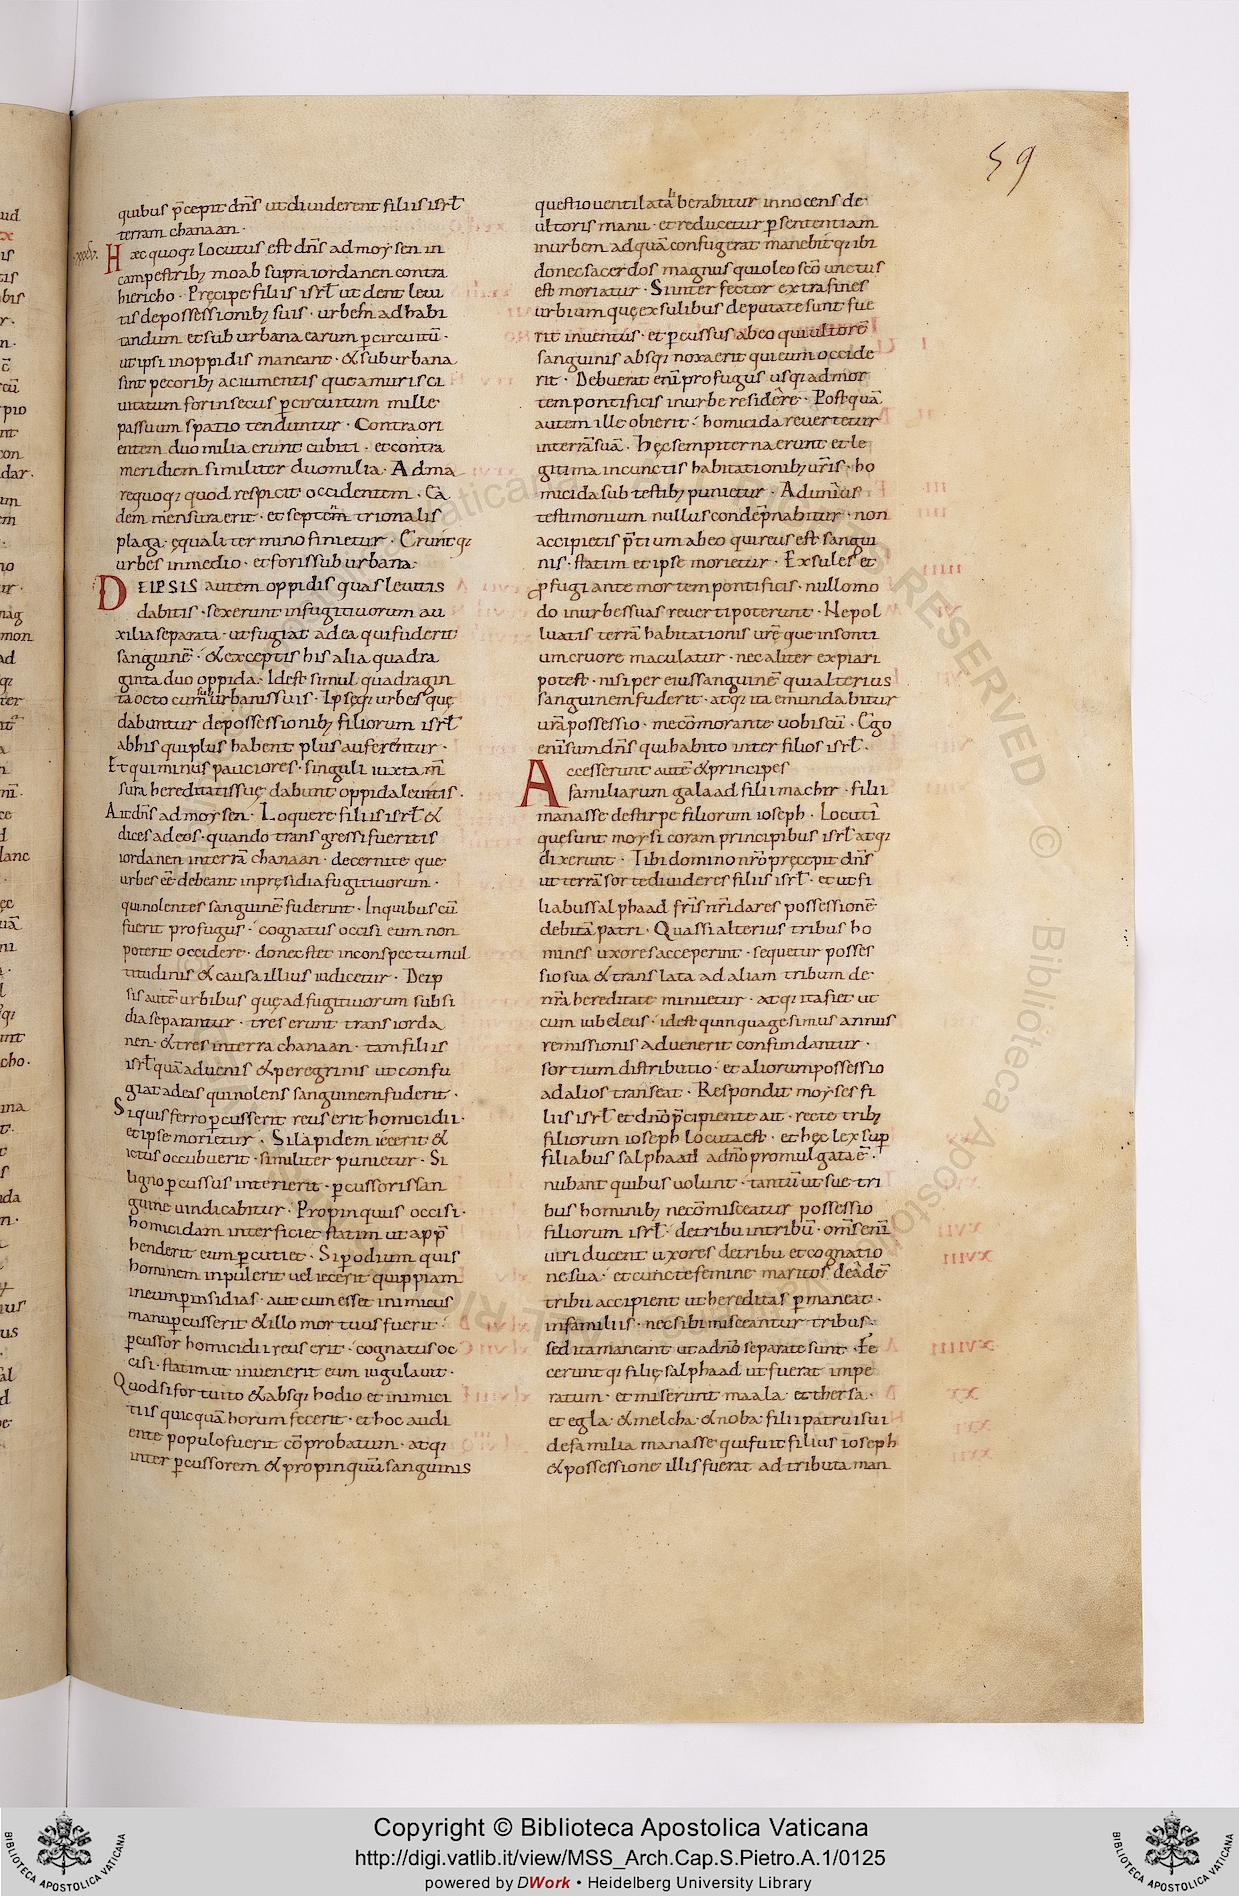 59
quibus p̄cepit dn̄s ut diuiderent filiis isrl̄
terram chanaan·
Haec quoq; locutus est dn̄s ad moysen in
campestrib; moab supra iordanen contra
hiericho· Pręcipe filiis isrl̄ ut dent leui
tis de possessionib; suis· urbes ad habi
tandum et suburbana earum p circuitū·
ut ipsi in oppidis maneant· & suburbana
sint pecorib; ac iumentis que a muris ci
uitatum forinsecus p circuitum mille
passuum spatio tenduntur· Contra ori
entem duo milia erunt cubiti· et contra
meridiem similiter duo milia· Ad ma
re quoq; quod respicit occidentem· Ca
dem mensura erit· et septemtrionalis
plaga· ęquali termino finietur· Erunt q;
urbes in medio· et foris suburbana·
DE IPSIS autem oppidis quas leuitis
dabitis· sex erunt in fugitiuorum au
xilia separata· ut fugiat ad ea qui fuderit
sanguinē· & exceptis his alia quadra
ginta duo oppida· Id est simul quadragin
ta octo cum suburbanis suis· Ipseq; urbes quę
dabuntur de possessionib; filiorum isrl̄
ab his qui plus habent plus auferentur·
Et qui minus pauciores· singuli iuxta m̄
sura hereditatis suę dabunt oppida leuitis·
Ait dn̄s ad moysen· Loquere filiis isrl̄ &
dices ad eos· quando transgressi fueritis
iordanen in terrā chanaan· decernite que
urbes eē debeant in pręsidia fugitiuorum·
qui nolentes sanguinē fuderint· In quibus cū
fuerit profugus· cognatus occisi eum non
poterit occidere· donec stet in conspectu mul
titudinis & causa illius iudicetur· De ip
sis autē urbibus quę ad fugitiuorum subsi
dia separantur· tres erunt trans iorda
nen· & tres in terra chanaan· tam filiis
isrl̄ quā aduenis & peregrinis ut confu
giat ad eas qui nolens sanguinem fuderit·
Si quis ferro pcusserit reus erit homicidii·
et ipse morietur· Si lapidem iecerit &
ictus occubuerit· similiter punietur· Si
ligno pcussus interierit· pcussoris san
guine uindicabitur· Propinquus occisi·
homicidam interficiet statim ut app̄
henderit eum pcutiet· Si p odium quis
hominem inpulerit uel iecerit quippiam
in eum p insidias· aut cum esset inimicus
manu pcusserit & illo mortuus fuerit·
pcussor homicidii reus erit· cognatus oc
cisi· statim ut inuenerit eum iugulauit·
Quod si fortuito & absq; hodio et inimici
tiis quicquā horum fecerit· et hoc audi
ente populo fuerit cōprobatum· atq;
inter pcussorem & propinquū sanguinis
questio uentilata liberabitur innocens de
ultoris manu· et reducetur p sententiam
in urbem ad quā confugerat manebit q; ibi
donec sacerdos magnus qui oleo scō unctus
est moriatur· Si interfector extra fines
urbium quę exsulibus deputate sunt fue
rit inuentus· et pcussus ab eo qui ultore
sanguinis absq; noxa erit qui eum occide
rit· Debuerat enī profugus usq; ad mor
tem pontificis in urbe residere· Postquā
autem ille obierit· homicida reuertetur
in terrā suā· Hęc sempiterna erunt et le
gitima in cunctis habitationib; ur̄is· ho
micida sub testib; punietur· Ad unius
testimonium nullus condēpnabitur· non
accipietis p̄tium ab eo qui reus est sangui
nis· statim et ipse morietur· Exsules et
pfugi ante mortem pontificis· nullo mo
do in urbes suas reuerti poterunt· Ne pol
luatis terrā habitationis urē que insonti
um cruore maculatur· nec aliter expiari
potest· nisi per eius sanguinē qui alterius
sanguinem fuderit· atq; ita emundabitur
urā possessio· me cōmorante uobiscū· Ego
enī sum dn̄s qui habito inter filios isrl̄·
Accesserunt autē & principes
familiarum galaad filii machir· filii
manasse de stirpe filiorum ioseph· Locuti
que sunt moysi coram principibus isrl̄ atq;
dixerunt· Tibi domino nr̄o pręcepit dn̄s
ut terrā sorte diuideres filiis isrl̄· et ut fi
liabus salphaad fr̄is nr̄i dares possessionē
debitā patri· Quas si alterius tribus ho
mines uxores acceperint· sequetur posses
sio sua & translata ad aliam tribum de
nr̄a hereditate minuetur· atq; ita fiet ut
cum iubeleus· id est quinquagesimus annus
remissionis aduenerit confundantur·
sortium distributio· et aliorum possessio
ad alios transeat· Respondit moyses fi
liis isrl̄ et dn̄o p̄cipiente ait· recte trib;
filiorum ioseph locuta est· et hęc lex sup
filiabus salphaad a dn̄o promulgata ē·
nubant quibus uolunt· tantū ut sue tri
bus hominib; ne cōmisceatur possessio
filiorum isrl̄· de tribu in tribū· om̄s enī
uiri ducent uxores de tribu et cognatio
ne sua· et cuncte femine maritos de eadē
tribu accipient ut hereditas pmaneat·
in familiis· nec sibi misceantur tribus·
sed ita maneant ut a dn̄o separate sunt· Fe
cerunt q; filię salphaad ut fuerat impe
ratum· et miserunt maala· et thersa·
et egla· & melcha· & noba· filii patrui sui
de familia manasse qui fuit filius ioseph
& possessione illis fuerat ad tributa man
Copyright © Biblioteca Apostolica Vaticana
http://digi.vatlib.it/view/MSS_Arch.Cap.S.Pietro.A.1/0125
powered by DWork • Heidelberg University Library